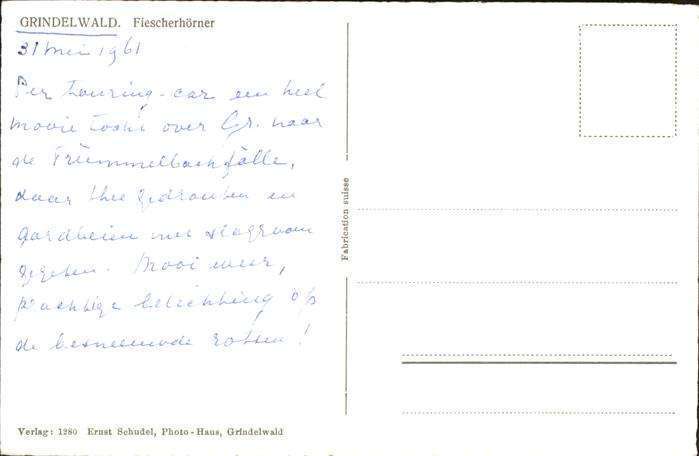 GRINDELWALD. Fiescherhörner
31 mei 1961
Per touring-car een heel
mooie tocht over Gr. naar
de Trümmelbachfälle,
daar thee gedronken en
aardbeien met slagroom
gegeten. Mooi weer,
prachtige belichting op
de besneeuwde rotsen!
Fabrication suisse
Verlag: 1280 Ernst Schudel, Photo-Haus, Grindelwald